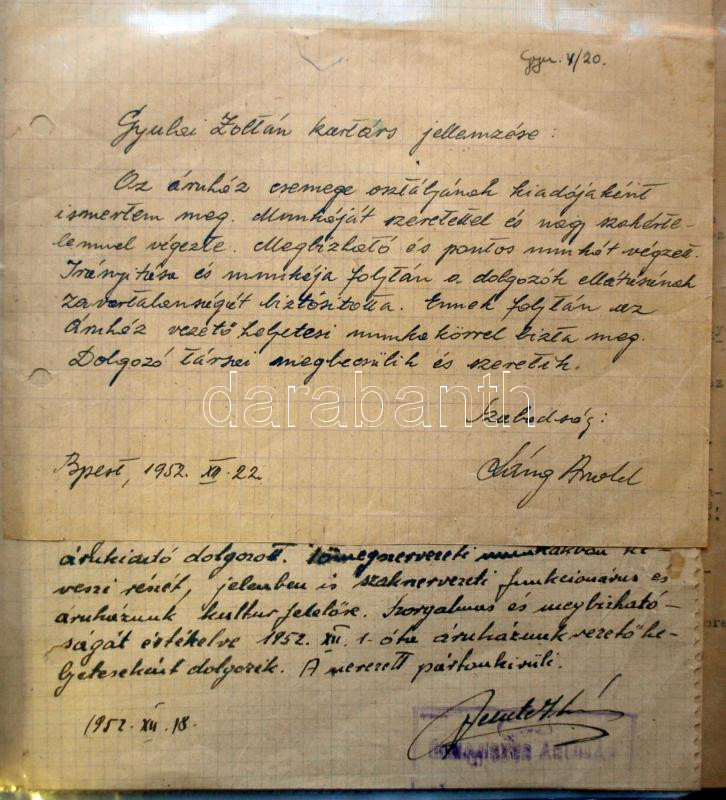 Gyulai Zoltán kartárs jellemzése:
Az áruház csemege osztályának kiadójaként
ismertem meg. Munkáját szeretettel és nagy szakérte-
lemmel végezte. Megbízható és pontos munkát végzett.
Irányitása és munkája folytán a dolgozók ellátásának
zavartalanságát biztósitotta. Ennek folytán az
áruház vezető helyetesi munkakörrel bizta meg.
Dolgozó társai megbecsülik és szeretik.
darabanth
Szabadság:
Bpest, 1952. XII. 22
Láng Arnold
árukiadó dolgozott. tömegszervezeti munkákban ki-
veszi részét, jelenben is szakszervezeti funkcionárus és
áruházunk kultur felelőse. Szorgalmas és megbizható-
ságát értékelve 1952. XII. 1-óta áruházunk vezető he-
lyeteseként dolgozik. A nevezett pártonkivüli.
1952. XII. 18.